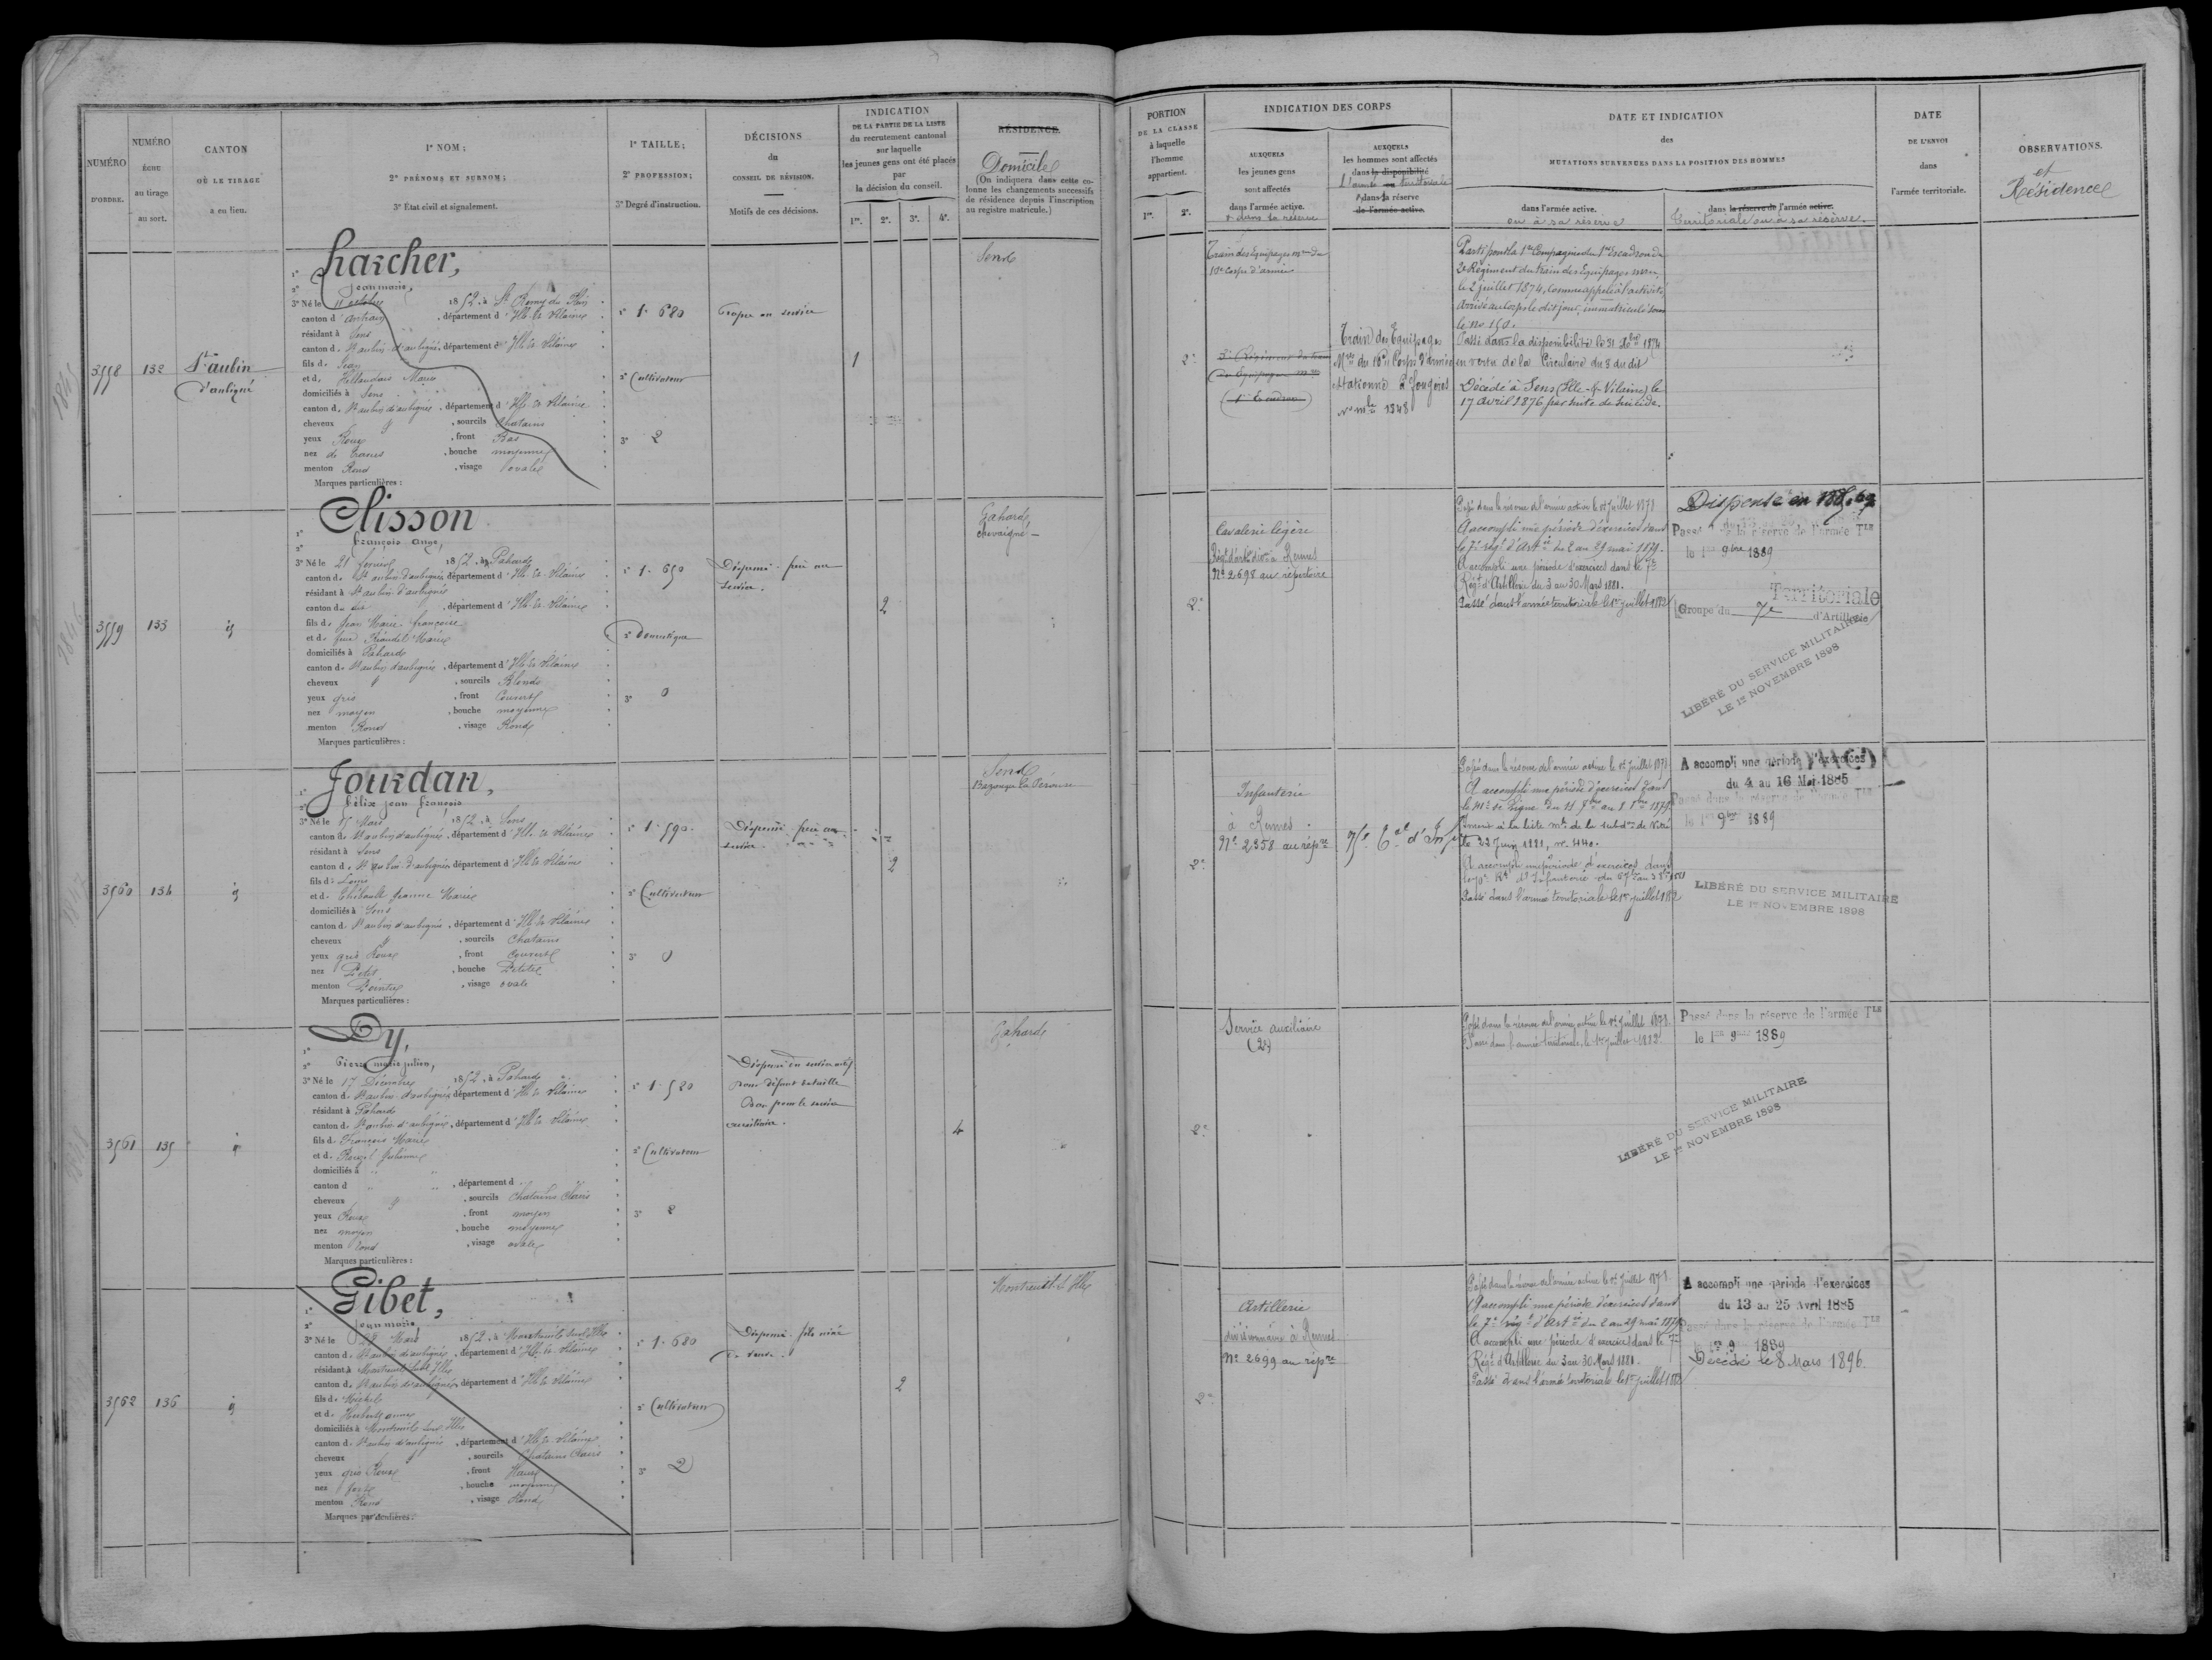 NUMÉRO
D'ORDRE.
NUMÉRO
ÉCHU
au tirage
au sort.
CANTON
OÙ LE TIRAGE
a eu lieu.
1° NOM;
2° PRÉNOMS ET SURNOM;
3° État civil et signalement.
1° TAILLE;
2° PROFESSION;
3° Degré d'instruction.
DÉCISIONS
du
CONSEIL DE RÉVISION.
Motifs de ces décisions.
INDICATION
DE LA PARTIE DE LA LISTE
du recrutement cantonal
sur laquelle
les jeunes gens ont été placés
par
la décision du conseil.
1re. 2e. 3e. 4e.
RÉSIDENCE.
Domicile
(On indiquera dans cette co-
lonne les changements successifs
de résidence depuis l'inscription
au registre matricule.)
PORTION
DE LA CLASSE
à laquelle
l'homme
appartient.
1re. 2e.
INDICATION DES CORPS
AUXQUELS
les jeunes gens
sont affectés
dans l'armée active.
& dans la réserve
AUXQUELS
les hommes sont affectés
dans la disponibilité
l'armée territoriale
& dans la réserve
de l'armée active.
DATE ET INDICATION
des
MUTATIONS SURVENUES DANS LA POSITION DES HOMMES
dans l'armée active.
ou à sa réserve
dans la réserve de l'armée active.
Territoriale ou à sa réserve.
DATE
DE L'ENVOI
dans
l'armée territoriale.
OBSERVATIONS.
et
Résidence
3558 132 St aubin
d'aubigné
1°
2° Jean marie,
3° Né le 11 octobre 1852, à St Remy du Plain
canton d'antrain, département d'Ille-et-Vilaine
résidant à Sens
canton de St aubin d'aubigné, département d'Ille-et-Vilaine
fils de Jean
et de Marie
domiciliés à Sens
canton de St aubin d'aubigné, département d'Ille-et-Vilaine
cheveux , sourcils Chatains
yeux Roux , front Bas
nez , bouche moyenne
menton Rond , visage ovale
Marques particulières :
1° 1.680
2° Cultivateur
3° 2
Propre au service
1
Sens
2e
Train des Equipages mres du
10e Corps d'armée
2e Régiment du train
des Equipages mres
Train des Equipages
Mres du 10e Corps d'armée
Stationné à Fougères
No mle 1348
Parti pour la 1re Compagnie du 1er Escadron du
2e Régiment du train des Equipages mres
le 2 juillet 1874, comme appelé à l'activité
Arrivé au Corps le dit jour, immatriculé sous
le no 150.
Passé dans la disponibilité le 31 Xbre 1874
en vertu de la Circulaire du 8 du dit
Décédé à Sens (Ille-&-Vilaine) le
17 avril 1876 par suite de suicide.
3559 133 id
Clisson
1°
2° françois ange,
3° Né le 21 février 1852, à Gahard
canton de St aubin d'aubigné, département d'Ille-et-Vilaine
résidant à St aubin d'aubigné
canton du dit , département d'Ille-et-Vilaine
fils de Jean Marie françois
et de feue Marie
domiciliés à Gahard
canton de St aubin d'aubigné, département d'Ille-et-Vilaine
cheveux , sourcils Blonds
yeux gris , front Couvert
nez moyen , bouche moyenne
menton Rond , visage Rond
Marques particulières :
1° 1.650
2° Domestique
3° 0
Dispensé. frère au
service.
2
Gahard
chevaigné
2e
Cavalerie légère
Régt d'artie divre à Rennes
No 2698 au répertoire
Passé dans la réserve de l'armée active le 1er juillet 1878
A accompli une période d'exercices dans
le 7e régt d'Artie du 2 au 29 mai 1879.
A accompli une période d'exercices dans le 7e
Régt d'Artillerie du 3 au 30 Mars 1881.
Passé dans l'armée territoriale le 1er juillet 1882
Dispensé en
Passé dans la réserve de l'armée Tle
le 1er 9bre 1889
Territoriale
Groupe du 7e d'Artillerie
LIBÉRÉ DU SERVICE MILITAIRE
LE 1er NOVEMBRE 1898
3560 134 id
Jourdan,
1°
2° félix jean françois
3° Né le 15 Mars 1852, à Sens
canton de St aubin d'aubigné, département d'Ille-et-Vilaine
résidant à Sens
canton de St aubin d'aubigné, département d'Ille-et-Vilaine
fils de Louis
et de Thébault jeanne Marie
domiciliés à Sens
canton de St aubin d'aubigné, département d'Ille-et-Vilaine
cheveux , sourcils Chatains
yeux gris Roux , front Couvert
nez Petit , bouche Petite
menton Pointu , visage ovale
Marques particulières :
1° 1.590
2° Cultivateur
3° 0
Dispensé. frère au
service.
2
Sens
Bazouges la Pérouse
2e
Infanterie
à Rennes
No 2358 au répre
75e Tal d'Infie
Passé dans la réserve de l'armée active le 1er juillet 1878
A accompli une période d'exercices dans
le 41e de Ligne du 11 7bre au 8 8bre 1879.
Inscrit à la liste mle de la subdon de Vitré
le 22 Juin 1881, no 440.
A accompli une période d'exercices dans
le 70e Rt d'Infanterie du
Passé dans l'armée territoriale le 1er juillet 1882
A accompli une période d'exercices
du 4 au 16 Mai 1885
Passé dans la réserve de l'armée Tle
le 1er 9bre 1889
LIBÉRÉ DU SERVICE MILITAIRE
LE 1er NOVEMBRE 1898
3561 135 id
Dy,
1°
2° Pierre marie julien,
3° Né le 17 Décembre 1852, à Gahard
canton de St aubin d'aubigné, département d'Ille-et-Vilaine
résidant à Gahard
canton de St aubin d'aubigné, département d'Ille-et-Vilaine
fils de François Marie
et de Julienne
domiciliés à
canton d , département d
cheveux , sourcils Chatains Clairs
yeux Roux , front moyen
nez moyen , bouche moyenne
menton rond , visage ovale
Marques particulières :
1° 1.520
2° Cultivateur
3° 2
Dispensé du service actif
pour défaut de taille
Bon pour le service
auxiliaire.
4
Gahard
2e
Service auxiliaire
Passé dans la réserve de l'armée active le 1er juillet 1878.
Passé dans l'armée territoriale le 1er juillet 1882
Passé dans la réserve de l'armée Tle
le 1er 9bre 1889
LIBÉRÉ DU SERVICE MILITAIRE
LE 1er NOVEMBRE 1898
3562 136 id
Gibet,
1°
2° jean marie,
3° Né le 22 Mars 1852, à Montreuil sur Ille
canton de St aubin d'aubigné, département d'Ille-et-Vilaine
résidant à Montreuil sur Ille
canton de St aubin d'aubigné, département d'Ille-et-Vilaine
fils de Michel
et de Hubert anne
domiciliés à Montreuil sur Ille
canton de St aubin d'aubigné, département d'Ille-et-Vilaine
cheveux , sourcils Chatains Clairs
yeux gris Roux , front Haut
nez fort , bouche moyenne
menton Rond , visage Rond
Marques particulières :
1° 1.680
2° Cultivateur
3° 2
Dispensé. fils aîné
de veuve.
2
Montreuil s. Ille
2e
Artillerie
divisionnaire à Rennes
No 2699 au répre
Passé dans la réserve de l'armée active le 1er juillet 1878.
A accompli une période d'exercices dans
le 7e régt d'Artie du 2 au 29 mai 1879
A accompli une période d'exercices dans le 7e
Régt d'Artillerie du 3 au 30 Mars 1881.
Passé dans l'armée territoriale le 1er juillet 1882
A accompli une période d'exercices
du 13 au 25 Avril 1885
Passé dans la réserve de l'armée Tle
le 1er 9 1889
Décédé le 8 Mars 1896.